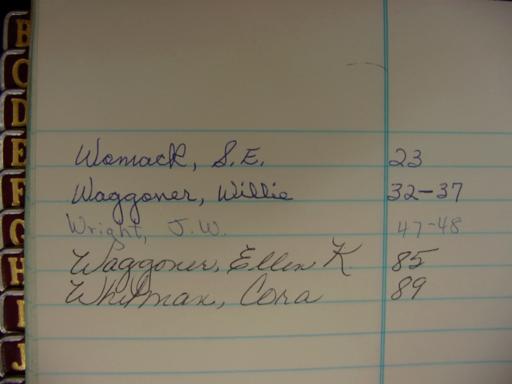 B
C
D
E
F
G
H
I
J
Womack, S.E. 23
Waggoner, Willie 32-37
Wright, J.W. 47-48
Waggoner, Ellen K. 85
Whitman, Cora 89